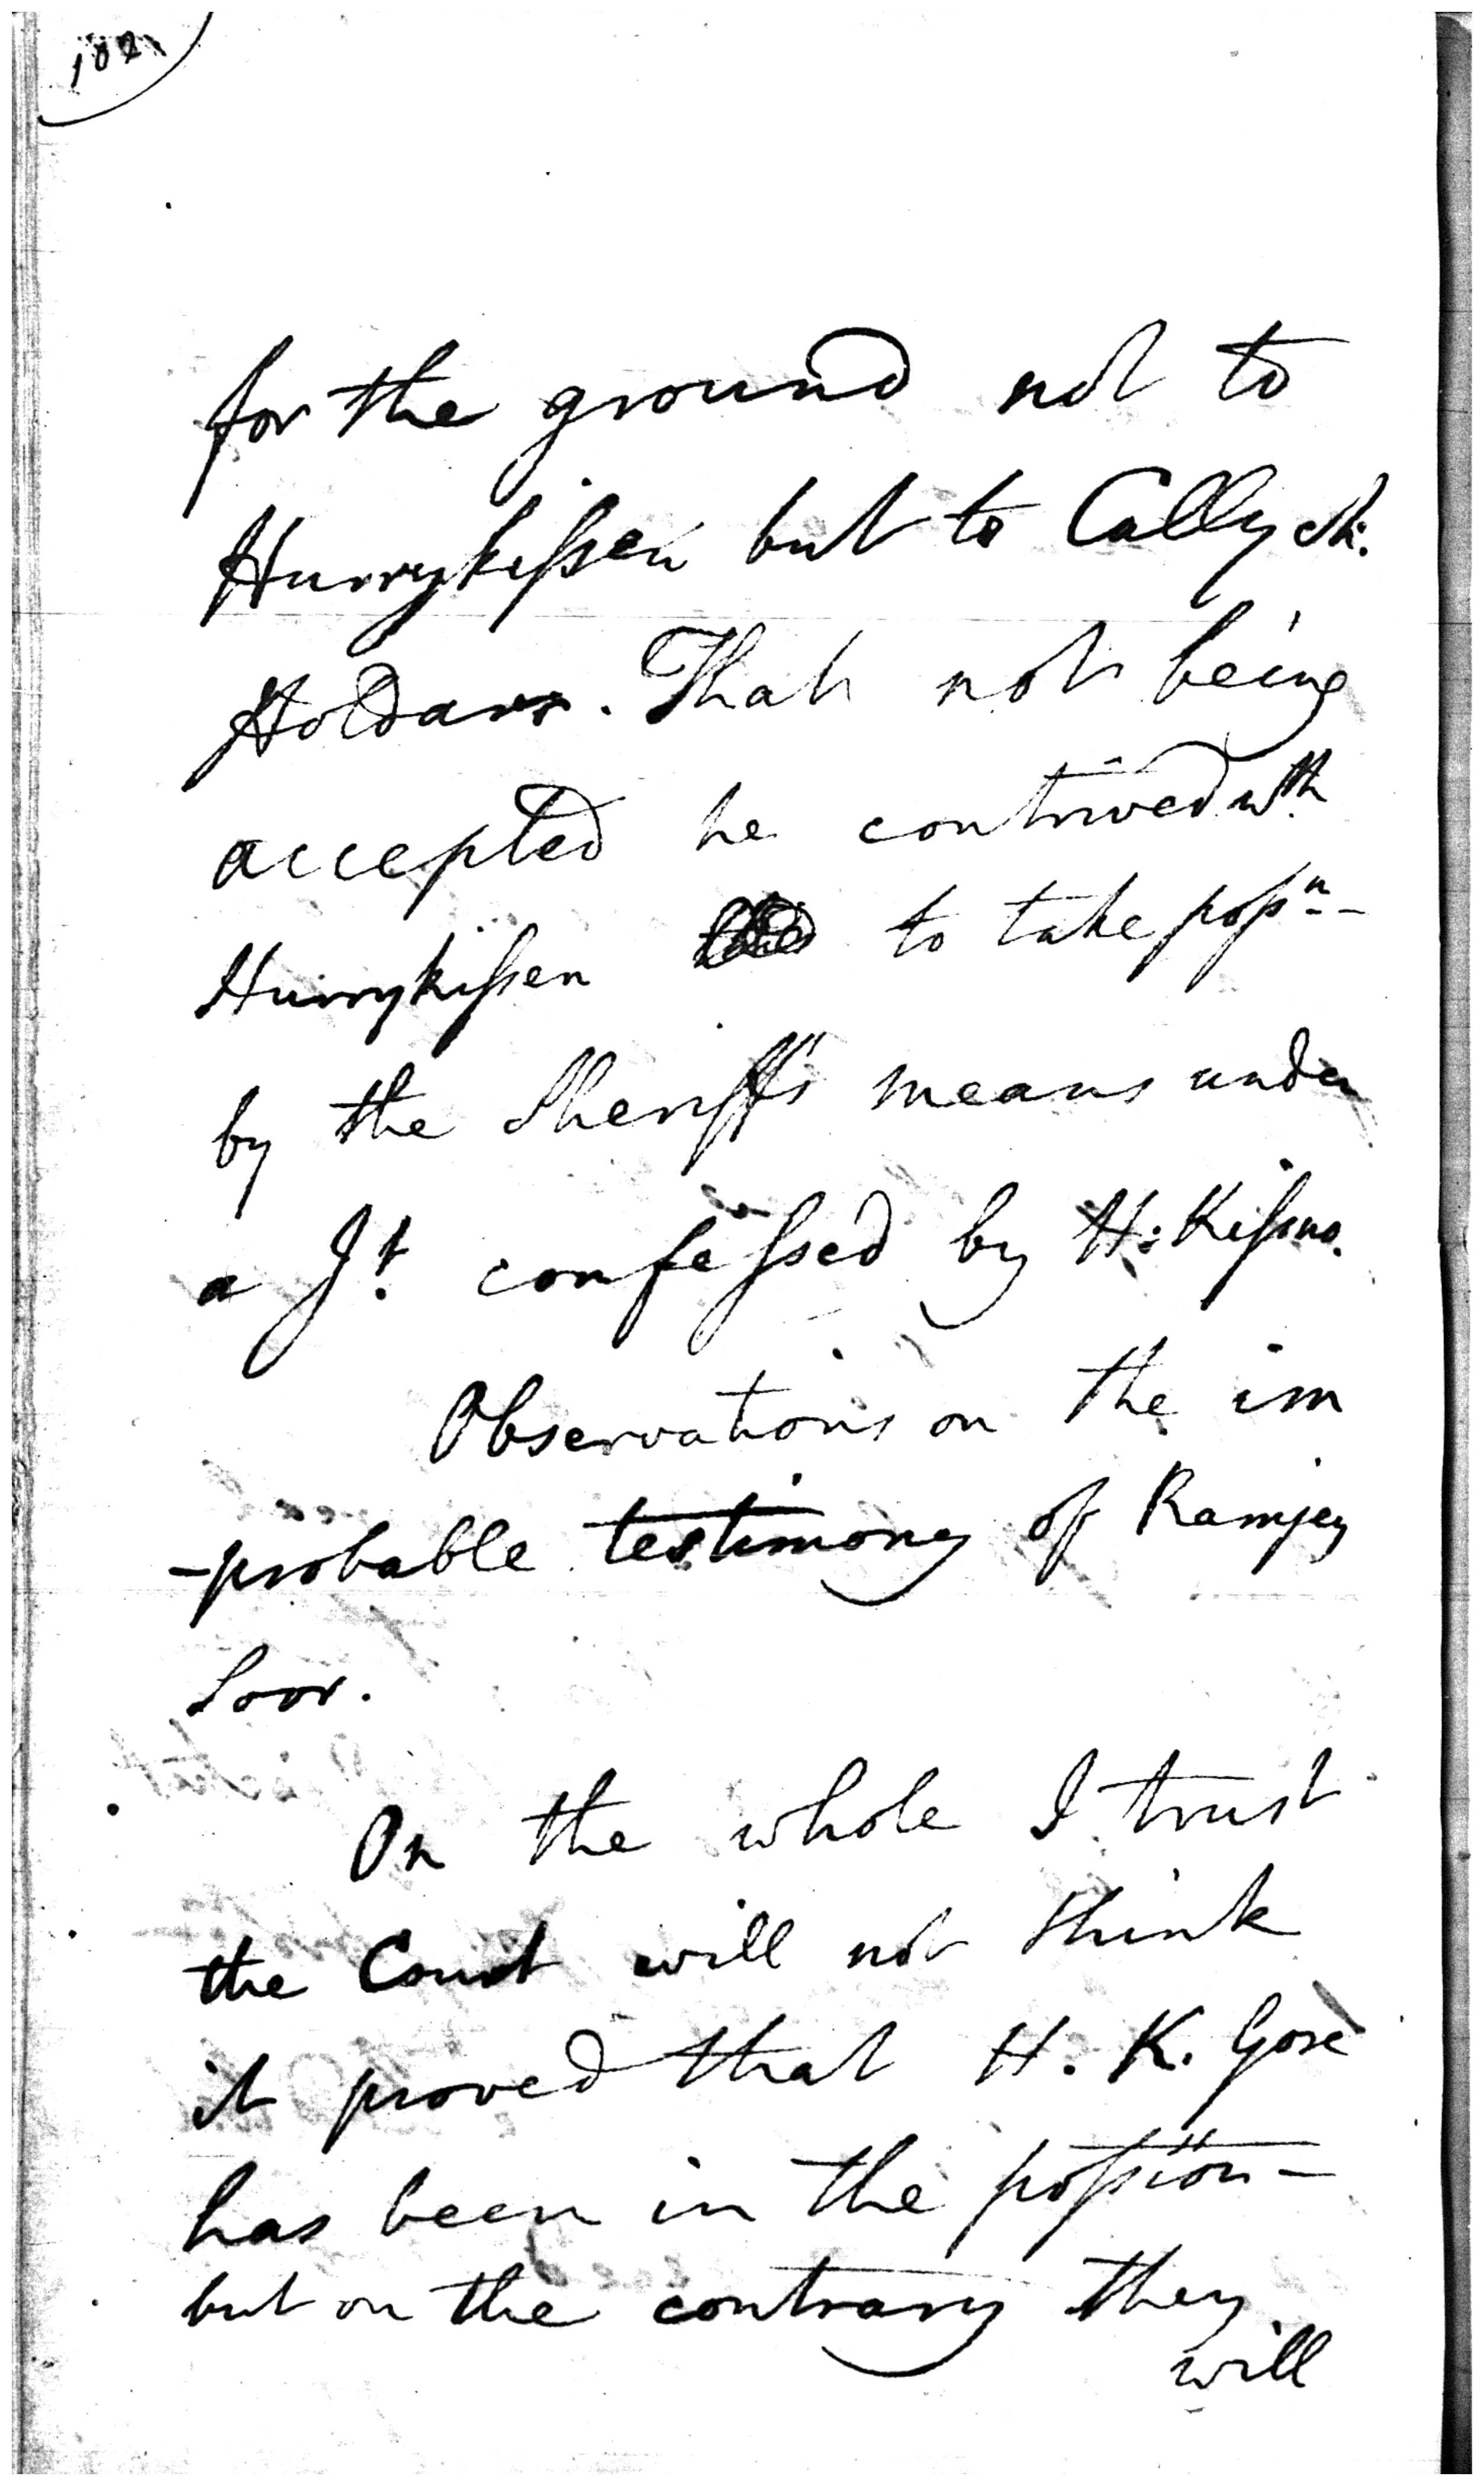 102
for the ground not to
Hurrykissen but to Cally ch.
Holdar. That not being
accepted he contrived wth
Hurrykissen to take possn-
by the Sheriffs means under
a Jt. confessed by H: Kissno.
Observations on the im
-probable testimony of Ramjey
Soor.
On the whole I trust
the Court will not think
it proved that H. K. Gose
has been in the possion-
but on the contrary they
will